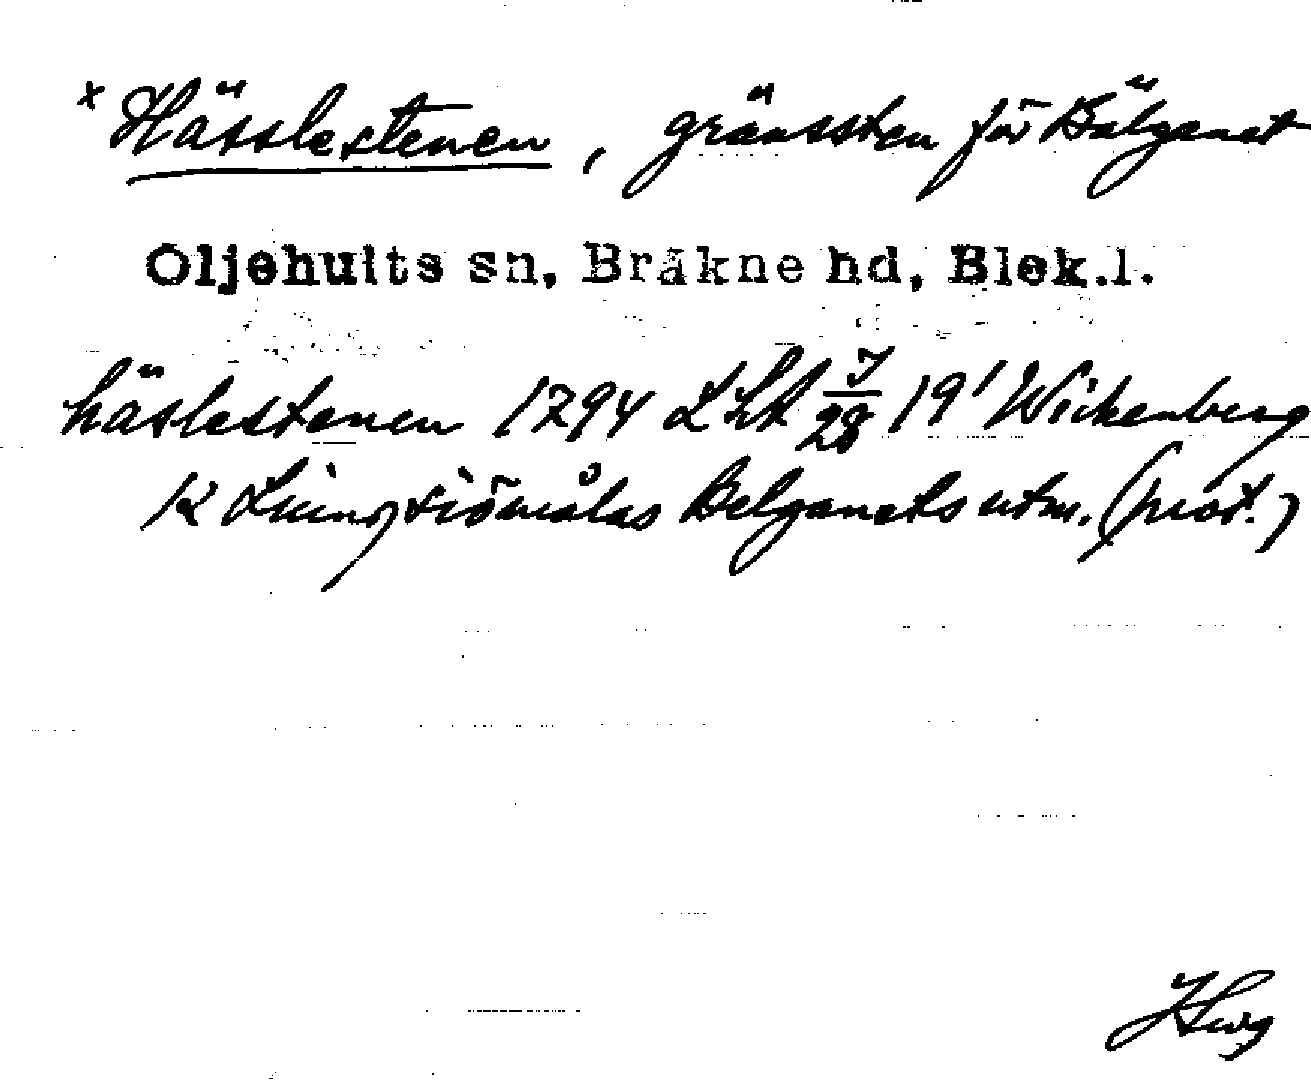 x Hässlestenen, gränssten för Bälganet
Oljehults sn, Bräkne hd, Blek.l.
häslestenen 1794 LSA J/28 19' Wickenberg
K Ljungsiömålas Belganets utm. (prot.)